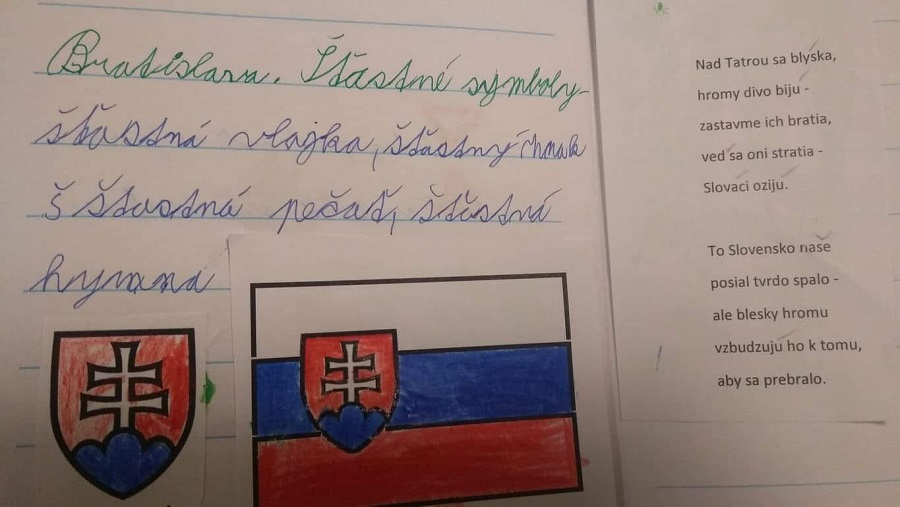 Bratislava. Štastné symboly-
štastná vlajka, štastný znak
š štastná pečať, štestná
hymna
Nad Tatrou sa blýska,
hromy divo biju -
zastavme ich bratia,
ved sa oni stratia -
Slovaci oziju.
To Slovensko naše
posial tvrdo spalo -
ale blesky hromu
vzbudzuju ho k tomu,
aby sa prebralo.